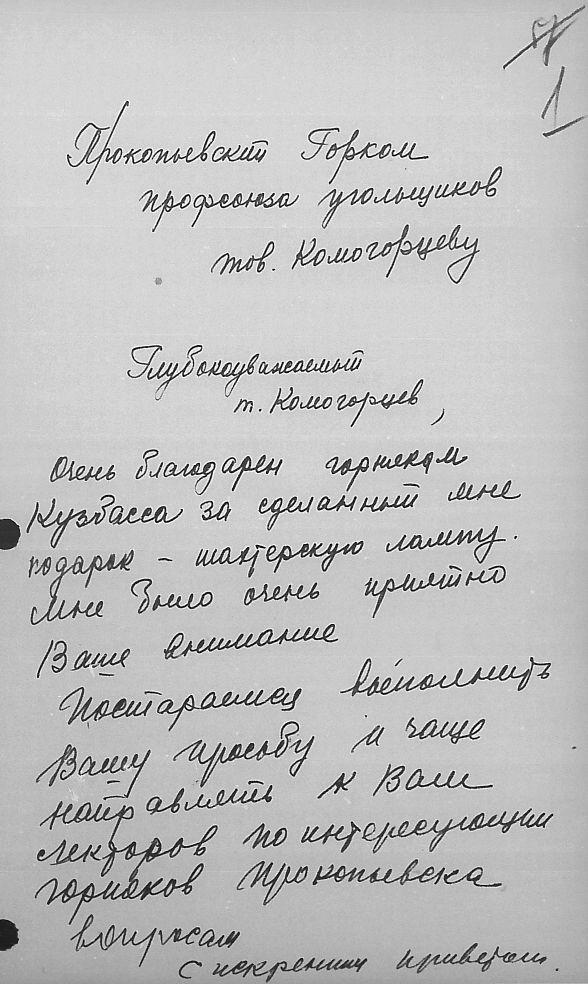 1
Прокопьевский Горком
профсоюза угольщиков
тов. Комогорцеву
Глубокоуважаемый
т. Комогорцев,
Очень благодарен горнякам
Кузбасса за сделанный мне
подарок – шахтерскую лампу.
Мне было очень приятно
Ваше внимание
Постараемся выполнить
Вашу просьбу и чаще
направлять к Вам
лекторов по интересующим
горняков Прокопьевска
вопросам
С искренним приветом.